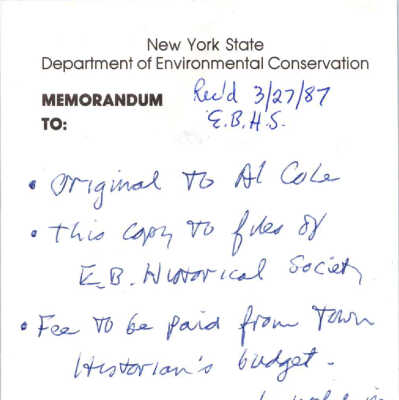 New York State
Department of Environmental Conservation
MEMORANDUM Rec'd 3/27/87
TO: E.B.H.S.
• Original to Al Cole
• This copy to files of
E.B. Historical Society
• Fee to be paid from Town
Historian's budget.